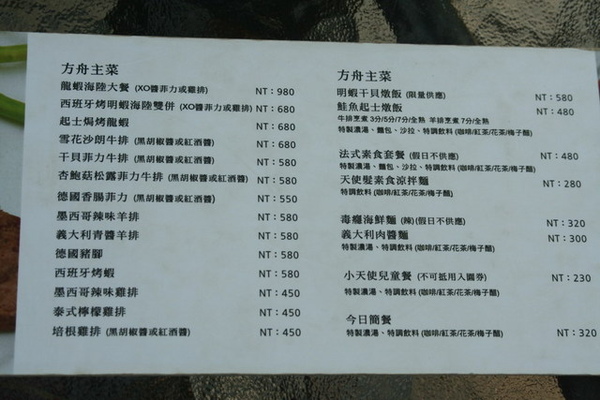 方舟主菜
龍蝦海陸大餐 (XO醬菲力或雞排) NT：980
西班牙烤明蝦海陸雙併 (XO醬菲力或雞排) NT：680
起士焗烤龍蝦 NT：680
雪花沙朗牛排 (黑胡椒醬或紅酒醬) NT：680
干貝菲力牛排 (黑胡椒醬或紅酒醬) NT：580
杏鮑菇松露菲力牛排 (黑胡椒醬或紅酒醬) NT：580
德國香腸菲力 (黑胡椒醬或紅酒醬) NT：550
墨西哥辣味羊排 NT：580
義大利青醬羊排 NT：580
德國豬腳 NT：580
西班牙烤蝦 NT：580
墨西哥辣味雞排 NT：450
泰式檸檬雞排 NT：450
培根雞排 (黑胡椒醬或紅酒醬) NT：450
方舟主菜
明蝦干貝燉飯 (限量供應) NT：580
鮭魚起士燉飯 NT：480
牛排烹煮 3分/5分/7分/全熟 羊排烹煮 7分/全熟
特製濃湯、麵包、沙拉、特調飲料 (咖啡/紅茶/花茶/梅子醋)
法式素食套餐 (假日不供應) NT：480
特製濃湯、麵包、沙拉、特調飲料 (咖啡/紅茶/花茶/梅子醋)
天使髮素食涼拌麵 NT：280
特調飲料 (咖啡/紅茶/花茶/梅子醋)
毒癮海鮮麵 (辣)(假日不供應) NT：320
義大利肉醬麵 NT：300
特製濃湯、特調飲料 (咖啡/紅茶/花茶/梅子醋)
小天使兒童餐 (不可抵用入園券) NT：230
特製濃湯、特調飲料 (咖啡/紅茶/花茶/梅子醋)
今日簡餐 NT：320
特製濃湯、特調飲料 (咖啡/紅茶/花茶/梅子醋)